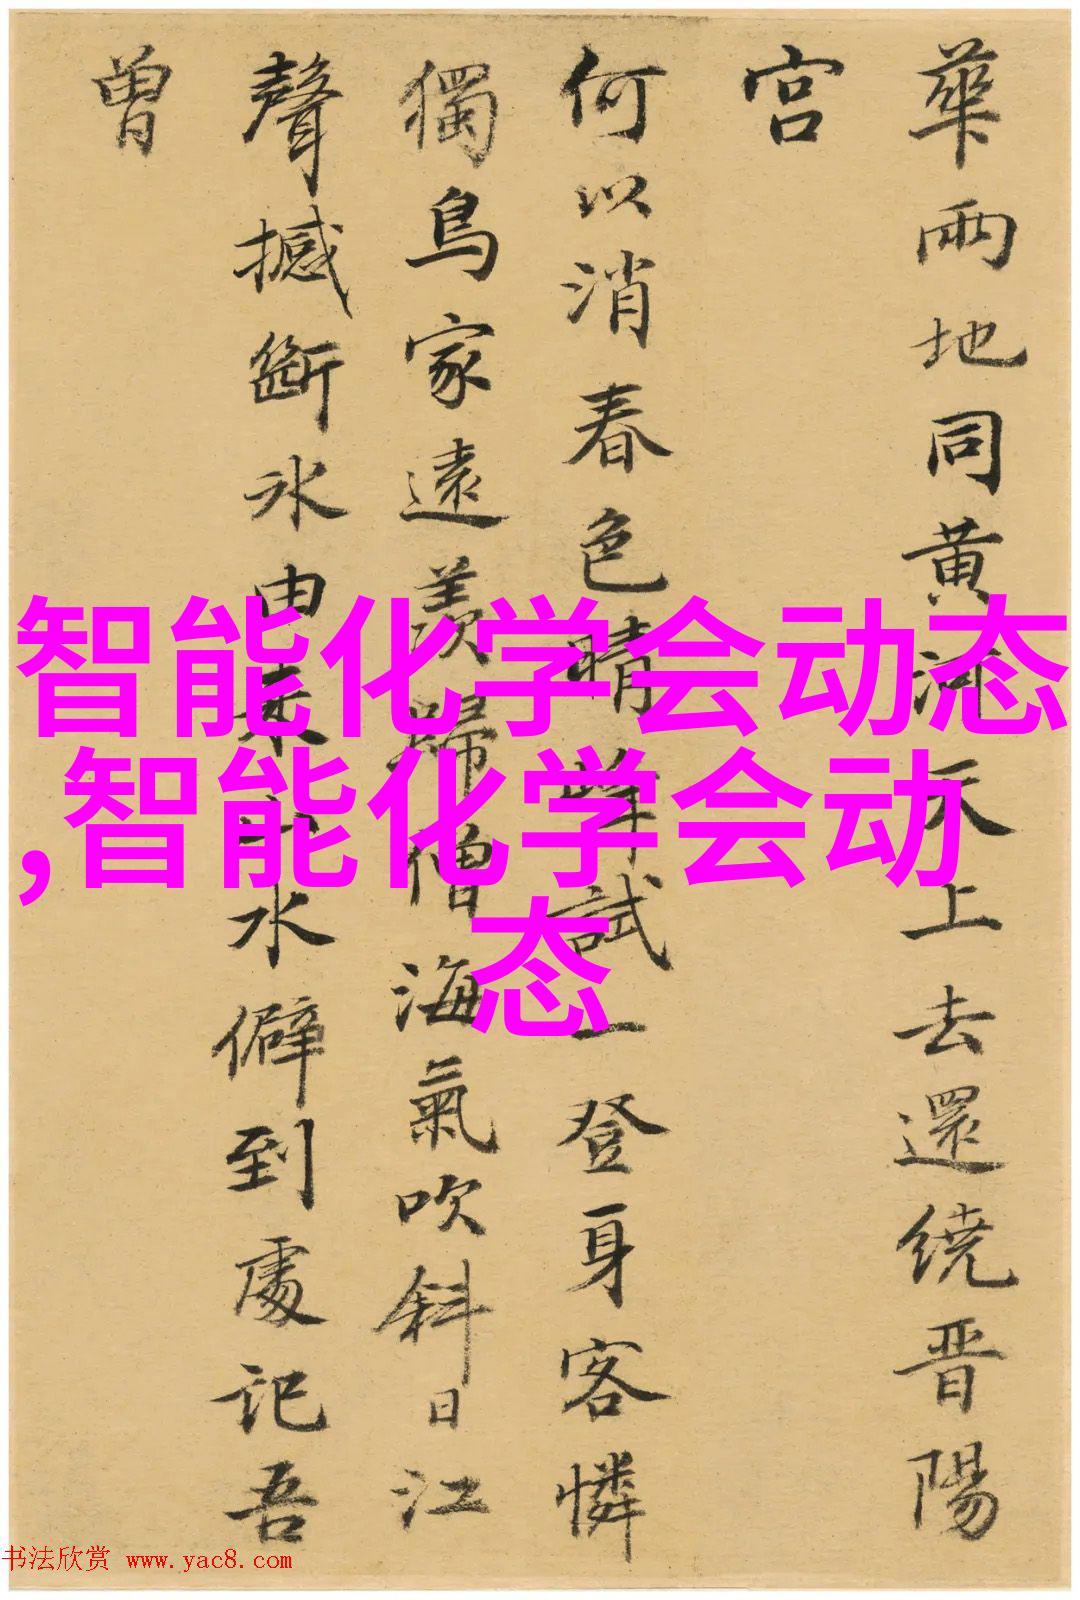 華兩地同黄河天上去還繞晋陽
宫
何以消春色晴峰試一登身客憐
獨鳥家遠羨歸僧海氣吹斜日江
聲撼斷冰由来山水僻到處記吾
曽
智能化学会动态
,智能化学会动
态
书法欣赏 www.yac8.com